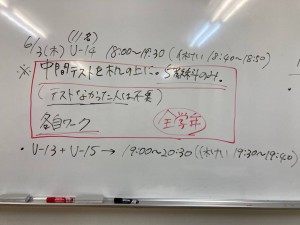 (11名)
6/3(木) U-14 18:00〜19:30 (休けい 18:40〜18:50)
※ 中間テストを机の上に。5教科のみ。
(テストなかった人は不要)
各自ワーク
・U-13 + U-15 → 19:00〜20:30 (休けい 19:30〜19:40)